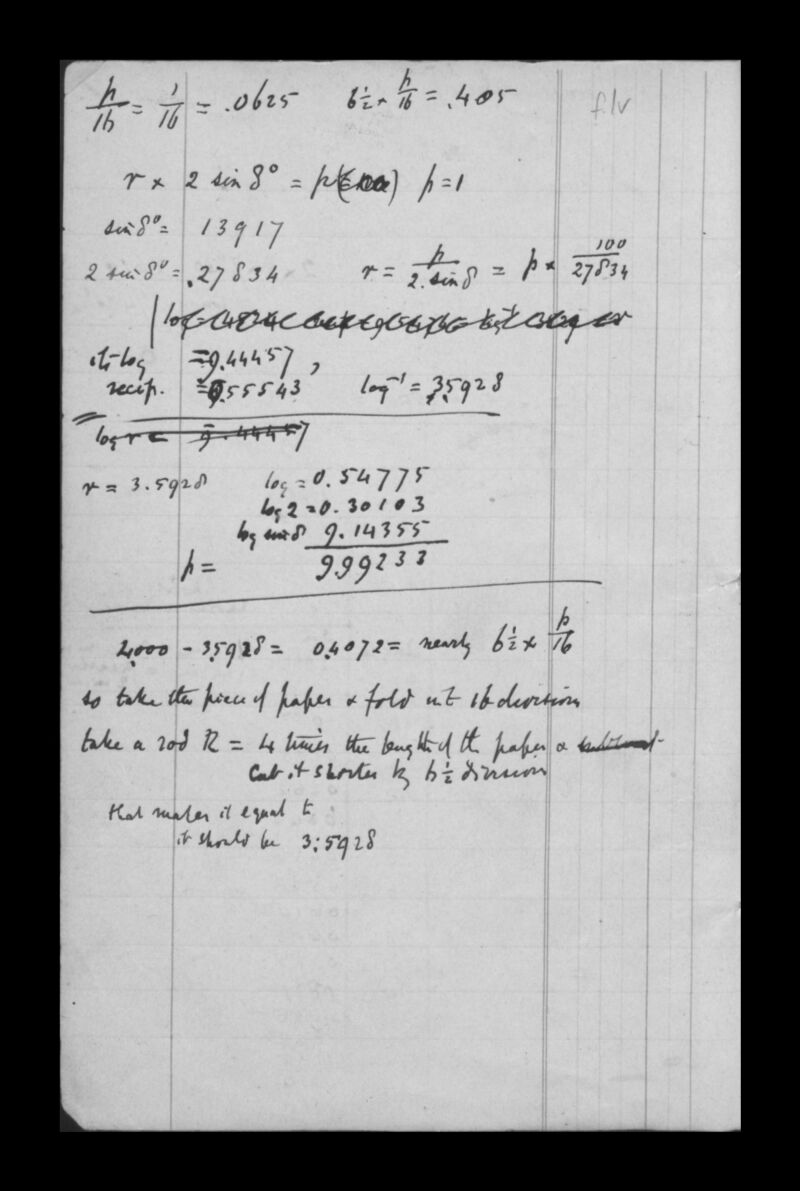 p/16 = 1/16 = .0625 6½ × p/16 = .405
f.1v
r × 2 sin 8° = p p = 1
sin 8° = 13917
2 sin 8° = .27834 r = p/2.sin 8 = p × 100/27834
log
its log = 9.44457,
recip. = 0.55543 log⁻¹ = 3.5928
log r = 9.44457
r = 3.5928 log = 0.54775
log 2 = 0.30103
log sin 8 9.14355
p = 9.99233
4.000 - 3.5928 = 0.4072 = nearly 6½ × p/16
so take the piece of paper & fold int 16 divisions
take a rod R = 4 times the length of the paper &
Cut it shorter by 6½ division
that makes it equal to
it should be 3.5928